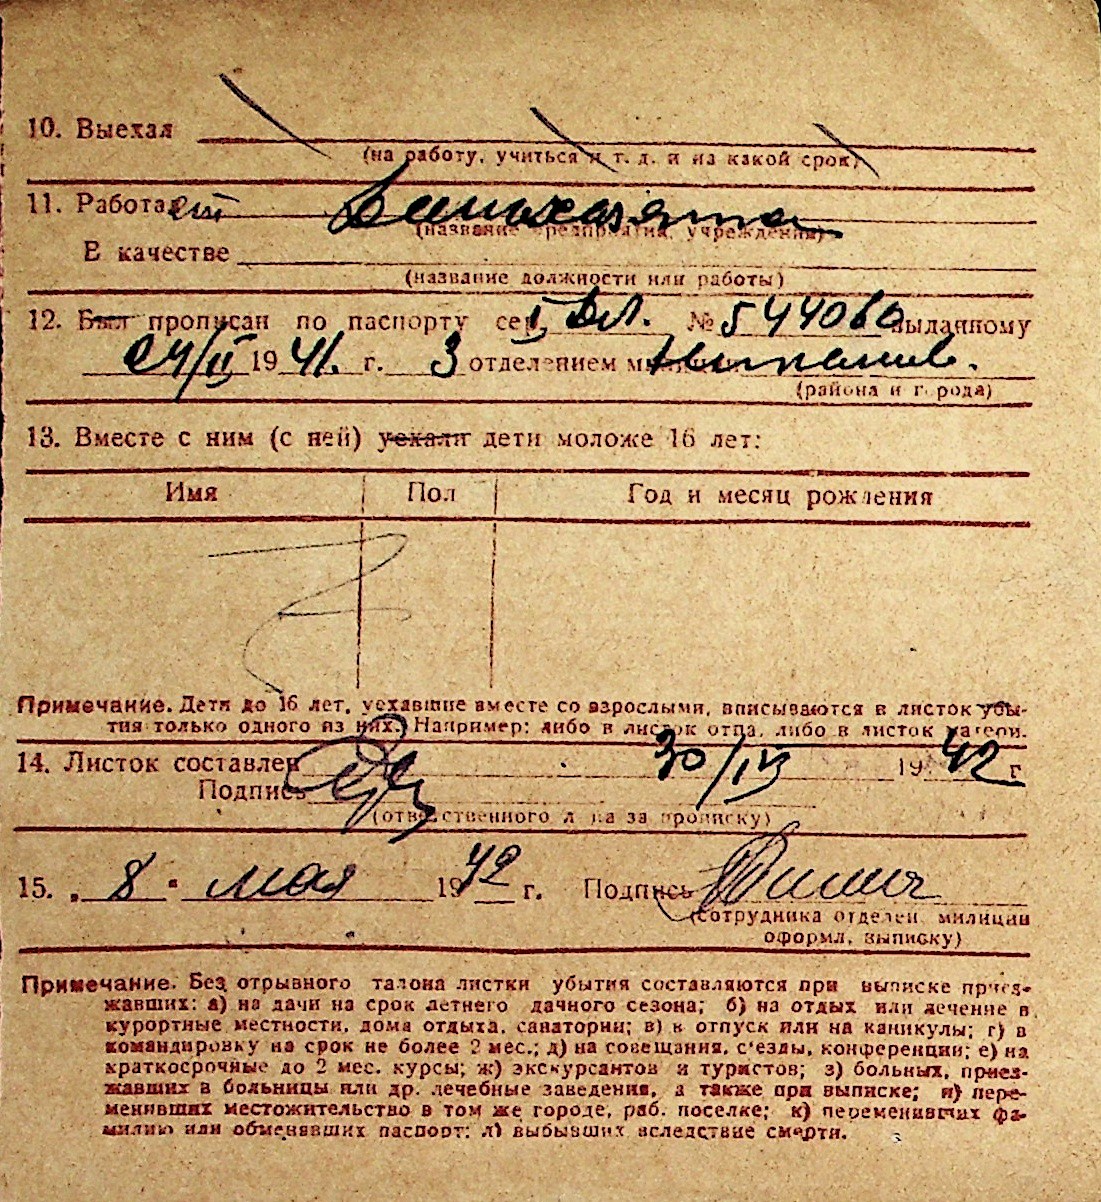 10. Выехал
(на работу, учиться и т. д. и на какой срок)
11. Работает Домохозяйка
(название предприятия, учреждения)
В качестве
(название должности или работы)
12. Был прописан по паспорту сер. I ДЛ. № 544060 выданному
24/II 1941. г. 3 отделением милиции
(района и города)
13. Вместе с ним (с ней) уехали дети моложе 16 лет:
Имя Пол Год и месяц рождения
Примечание. Дети до 16 лет, уехавшие вместе со взрослыми, вписываются в листок убы-
тия только одного из них. Например: либо в листок отца, либо в листок матери.
14. Листок составлен 30/IV 1942 г
Подпись
(ответственного лица за прописку)
15. „ 8 " мая 1942 г. Подпись
(сотрудника отделен. милиции
оформл. выписку)
Примечание. Без отрывного талона листки убытия составляются при выписке приез-
жавших: а) на дачи на срок летнего дачного сезона; б) на отдых или лечение в
курортные местности, дома отдыха, санатории; в) в отпуск или на каникулы; г) в
командировку на срок не более 2 мес.; д) на совещания, с'езды, конференции; е) на
краткосрочные до 2 мес. курсы; ж) экскурсантов и туристов; з) больных, приез-
жавших в больницы или др. лечебные заведения, а также при выписке; и) пере-
менивших местожительство в том же городе, раб. поселке; к) переменивших фа-
милию или обменявших паспорт; л) выбывших вследствие смерти.